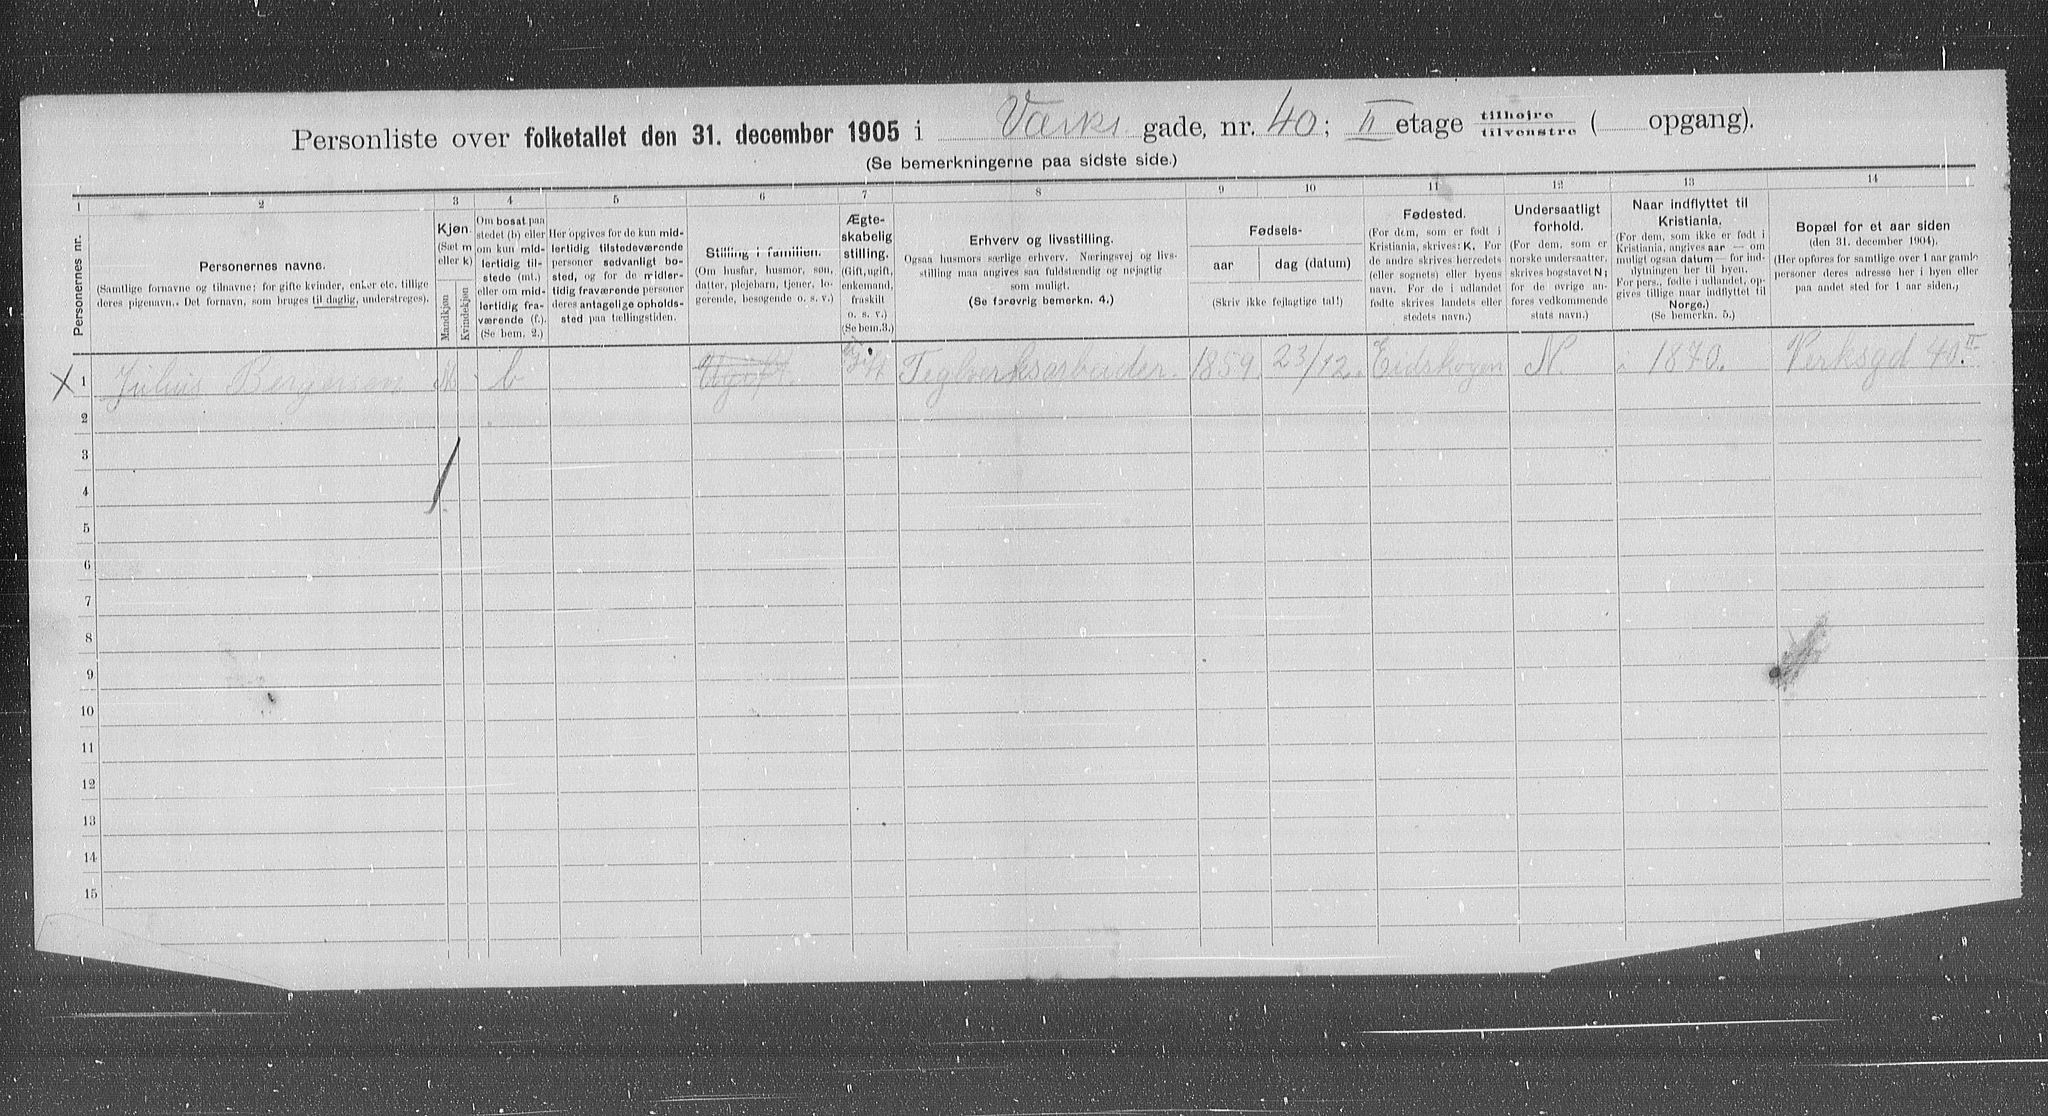 Personliste over folketallet den 31. december 1905 i Værks gade, nr. 40; II etage tilhøjre tilvenstre ( opgang).
(Se bemerkningerne paa sidste side.)
1 2 3 4 5 6 7 8 9 10 11 12 13 14
Personernes nr.
Personernes navne.
(Samtlige fornavne og tilnavne; for gifte kvinder, enker etc. tillige
deres pigenavn. Det fornavn, som bruges til daglig, understreges).
Kjøn.
(Sæt m
eller k)
Mandkjøn
Kvindekjøn
Om bosat paa
stedet (b) eller
om kun mid-
lertidig til-
stede (mt.)
eller om mid-
lertidig fra-
værende (f.).
(Se bem. 2.)
Her opgives for de kun mid-
lertidig tilstedeværende
personer sedvanligt bo-
sted, og for de midler-
tidig fraværende personer
deres antagelige opholds-
sted paa tællingstiden.
Stilling i familien.
(Om husfar, husmor, søn,
datter, plejebarn, tjener, lo-
gerende, besøgende o. s. v.)
Ægte-
skabelig
stilling.
(Gift, ugift,
enkemand,
fraskilt
o. s. v.)
(Se bem. 3.)
Erhverv og livsstilling.
Ogsaa husmors særlige erhverv. Næringsvej og livs-
stilling maa angives saa fuldstændig og nøjagtig
som muligt.
(Se forøvrig bemerkn. 4.)
Fødsels-
aar dag (datum)
(Skriv ikke fejlagtige tal!)
Fødested.
(For dem, som er født i
Kristiania, skrives: K. For
de andre skrives herredets
(eller sognets) eller byens
navn. For de i udlandet
fødte skrives landets eller
stedets navn.)
Undersaatligt
forhold.
(For dem, som er
norske undersaatter,
skrives bogstavet N;
for de øvrige an-
føres vedkommende
stats navn.)
Naar indflyttet til
Kristiania.
(For dem, som ikke er født i
Kristiania, angives aar — om
muligt ogsaa datum — for ind-
flytningen her til byen.
For pers., fødte i udlandet, op-
gives tillige naar indflyttet til
Norge.)
(Se bemerkn. 5.)
Bopæl for et aar siden
(den 31. december 1904).
(Her opføres for samtlige over 1 aar gamle
personer deres adresse her i byen eller
paa andet sted for 1 aar siden.)
X 1 Julius Bergersen M. b Ugift. Ugift Teglverksarbeider. 1859. 23/12. Eidskogen N. 1870. Verksgd 40. II
2
3
4
5
6
7
8
9
10
11
12
13
14
15